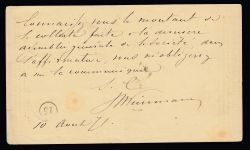 Connaissez vous le montant de
la collecte faite à la dernière
assemblée générale de la Société dans
l'affirmative, vous m'obligerez
à me le communiquer
10 Août 71.